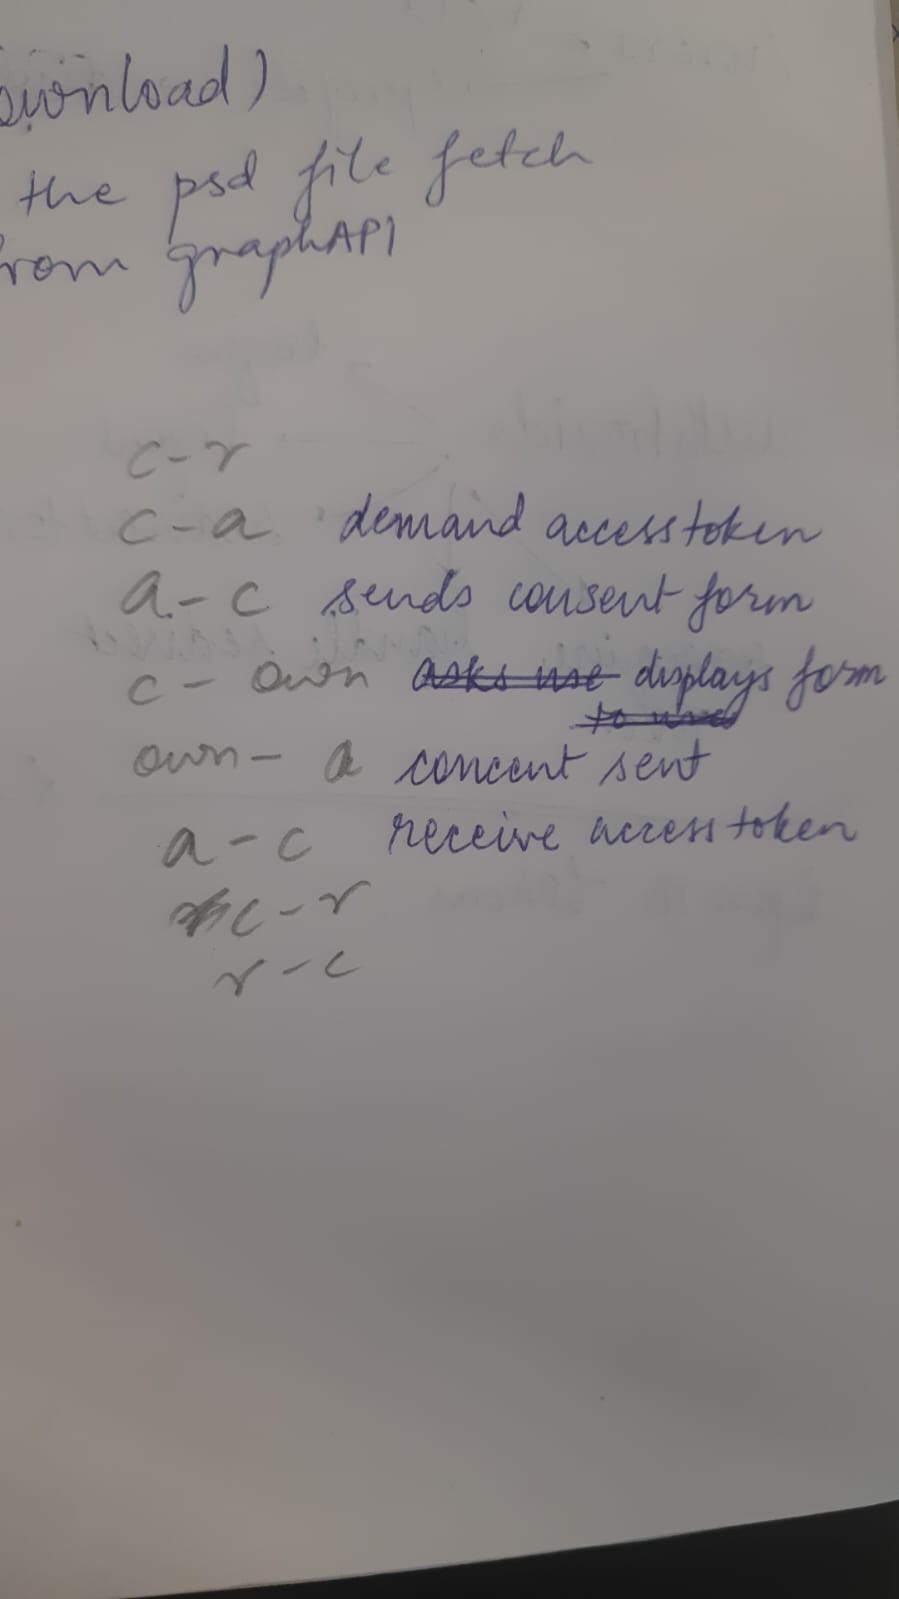 ownload)
the psd file fetch
rom graphAPI
c - r
c - a demand access token
a - c sends consent form
c - own asks use displays form
to used
own - a concent sent
a - c receive access token
c - r
r - c